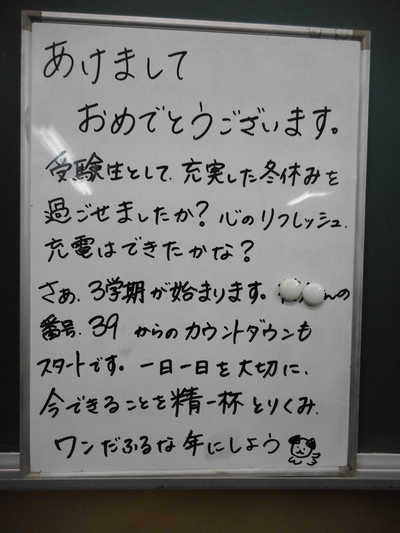 あけまして
おめでとうございます。
受験生として、充実した冬休みを
過ごせましたか?心のリフレッシュ、
充電はできたかな?
さぁ、3学期が始まります。んの
番号、39 からのカウントダウンも
スタートです。一日一日を大切に、
今できることを精一杯とりくみ、
ワンだふるな年にしよう